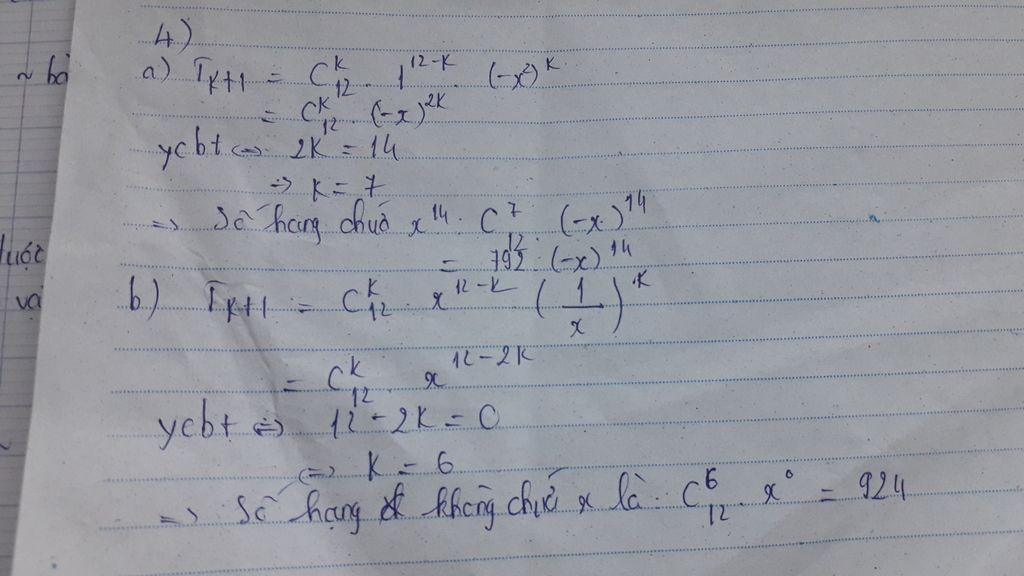 4)
~ bà
a) T_{K+1} = C_{12}^{K} . 1^{12-K} . (-x²)^K
= C_{12}^{K} . (-x)^{2K}
ycbt ⇔ 2K = 14
⇒ K = 7
⇒ Số hạng chứa x^{14} . C_{12}^{7} . (-x)^{14}
= 792 . (-x)^{14}
và
b.) T_{K+1} = C_{12}^{K} . x^{12-K} (1/x)^{.K}
= C_{12}^{K} . x^{12-2K}
ycbt ⇔ 12 - 2K = 0
⇔ K = 6
⇒ Số hạng không chứa x là . C_{12}^{6} . x^0 = 924